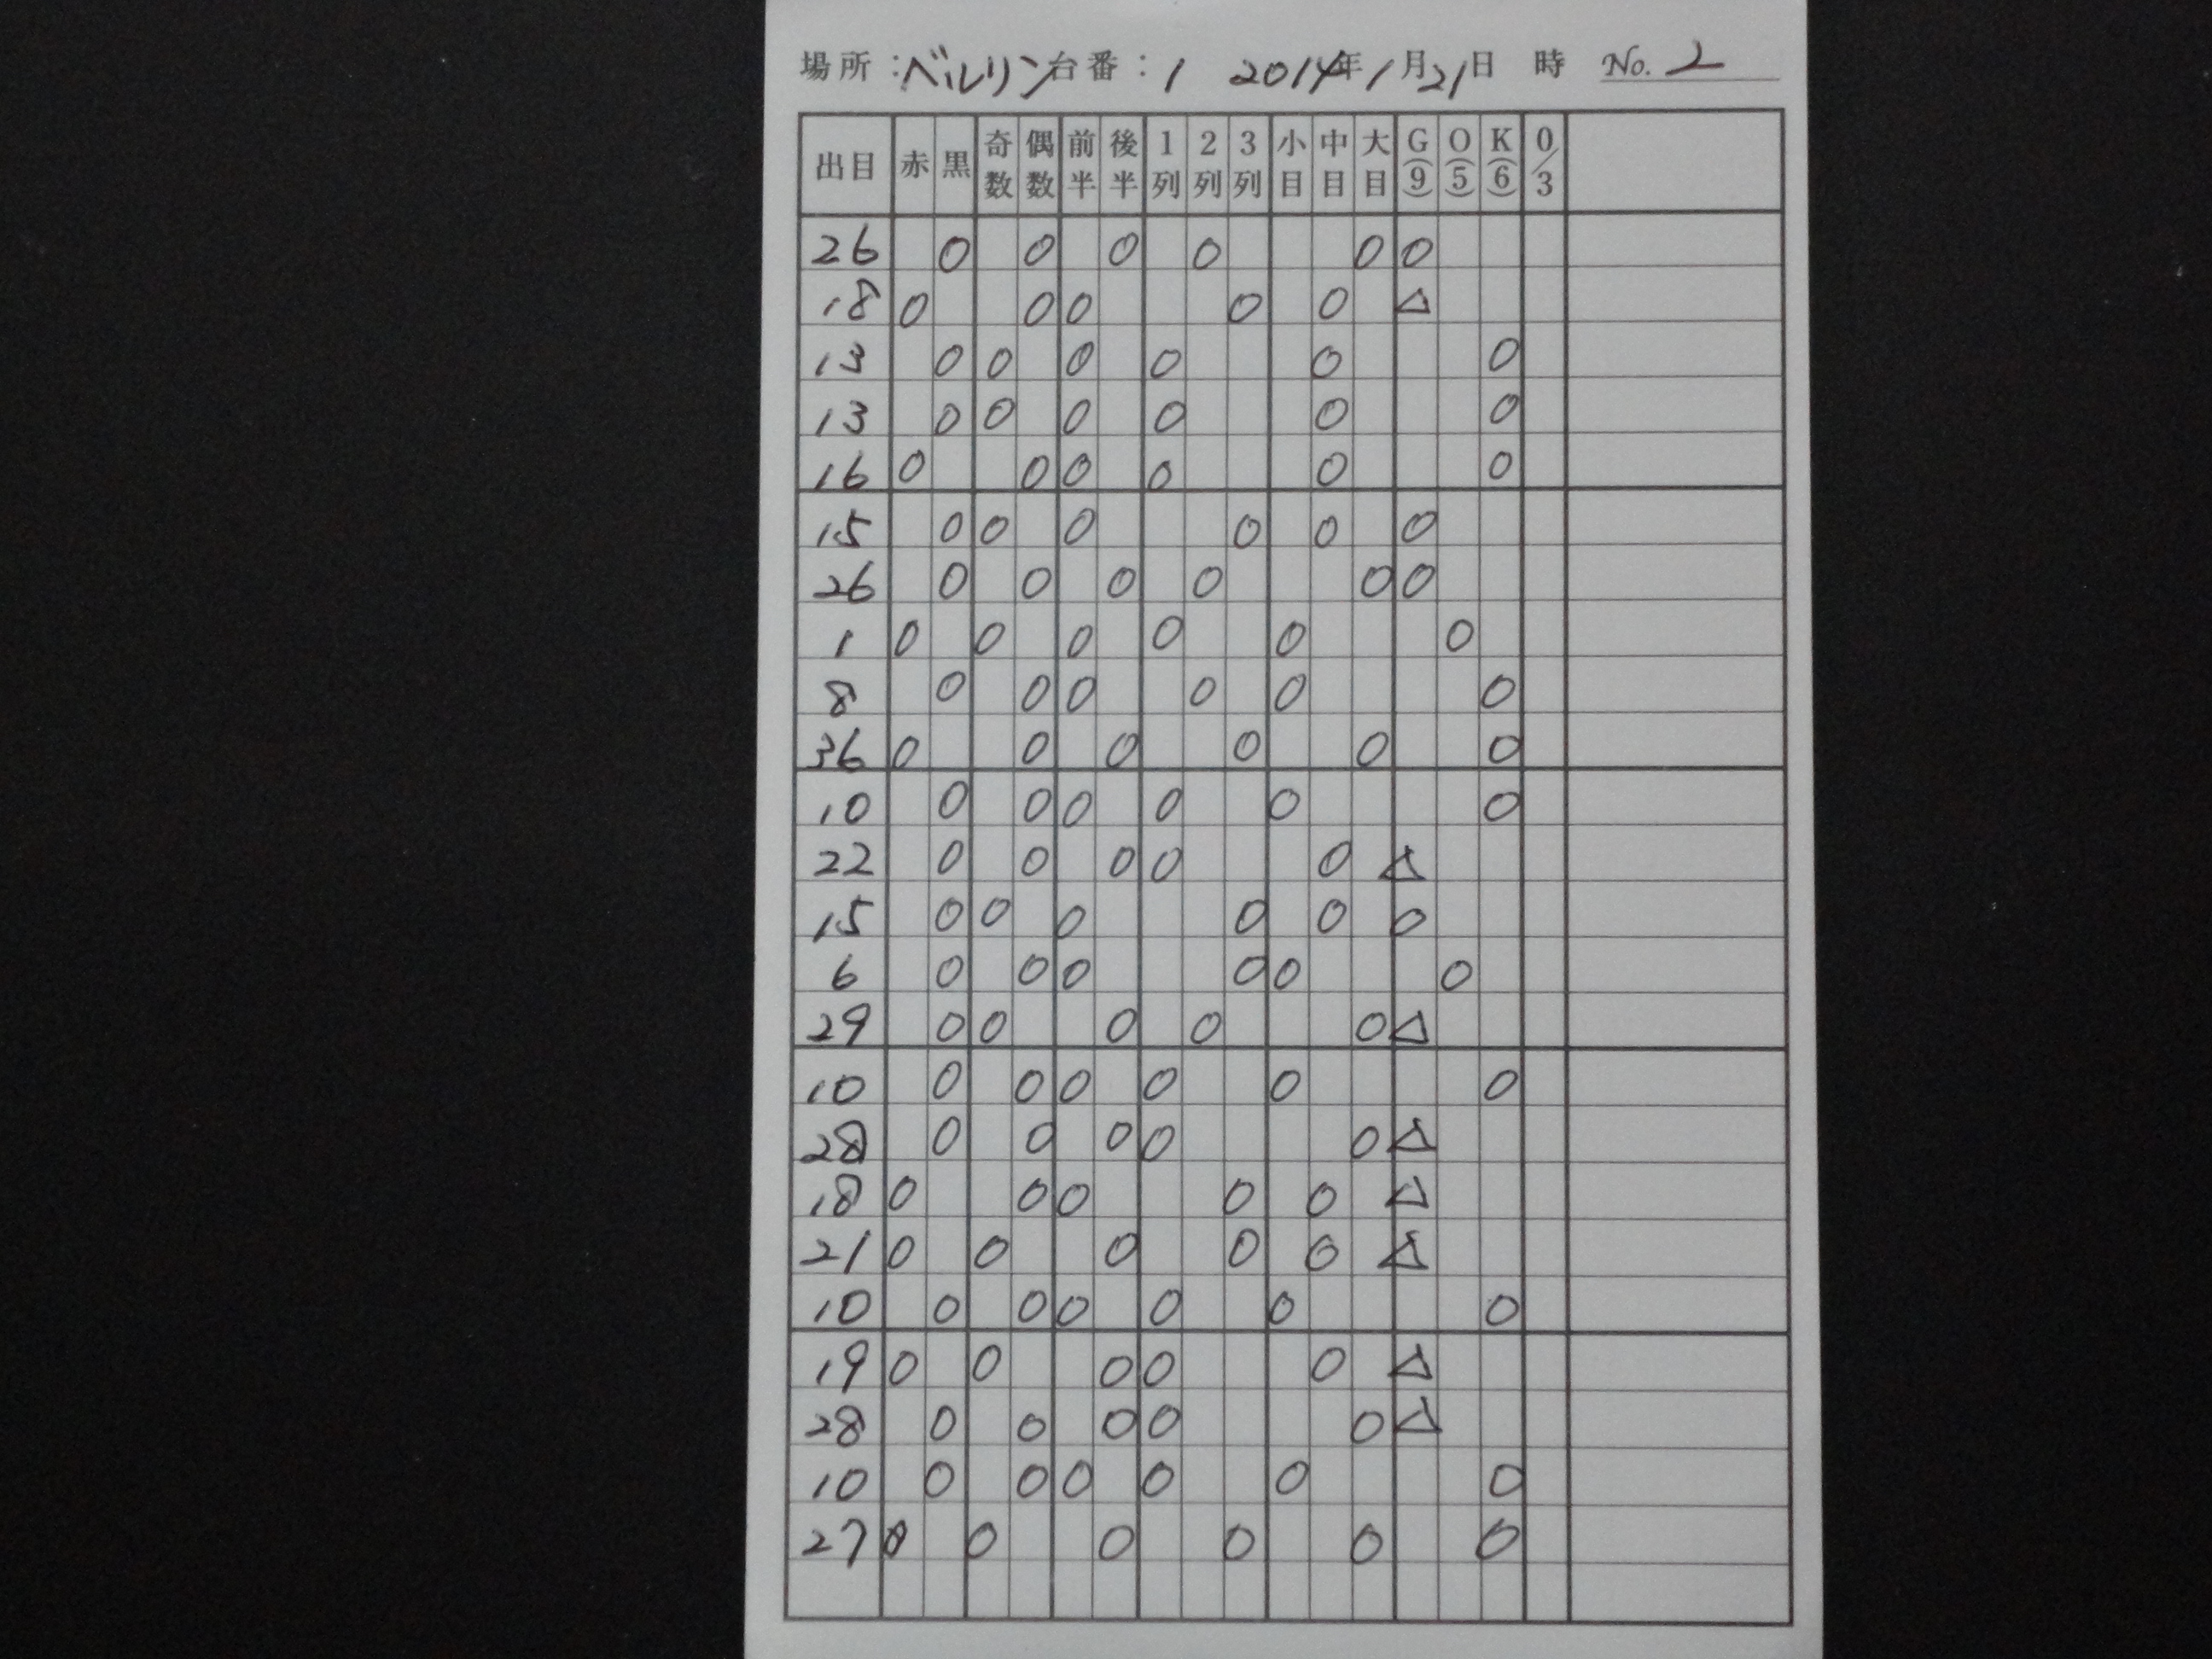 場所：ベルリン 台番：1 2014年1月21日 時 No. 2
出目 赤 黒 奇数 偶数 前半 後半 1列 2列 3列 小目 中目 大目 G(9) O(5) K(6) 0/3
26 0 0 0 0 0 0
18 0 0 0 0 0 △
13 0 0 0 0 0 0
13 0 0 0 0 0 0
16 0 0 0 0 0 0
15 0 0 0 0 0 0
26 0 0 0 0 0 0
1 0 0 0 0 0 0
8 0 0 0 0 0 0
36 0 0 0 0 0 0
10 0 0 0 0 0 0
22 0 0 0 0 0 △
15 0 0 0 0 0 0
6 0 0 0 0 0 0
29 0 0 0 0 0 △
10 0 0 0 0 0 0
28 0 0 0 0 0 △
18 0 0 0 0 0 △
21 0 0 0 0 0 △
10 0 0 0 0 0 0
19 0 0 0 0 0 △
28 0 0 0 0 0 △
10 0 0 0 0 0 0
27 0 0 0 0 0 0